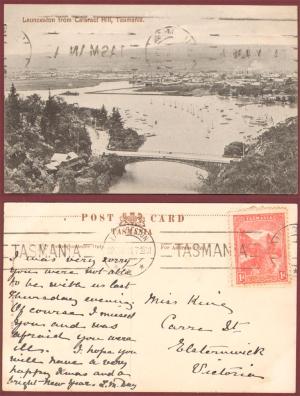 Launceston from Cataract Hill, Tasmania.
TASMANIA
POST CARD
TASMANIA
TASMANIA
TASMANIA
TASMANIA
1d 1d
I was very sorry
you were not able
to be with us last
Thursday evening
Of course I missed
you and was
afraid you were
ill. I hope you
will have a very
happy Xmas and a
bright New Year.
Miss King
Carre St.
Elsternwick
Victoria